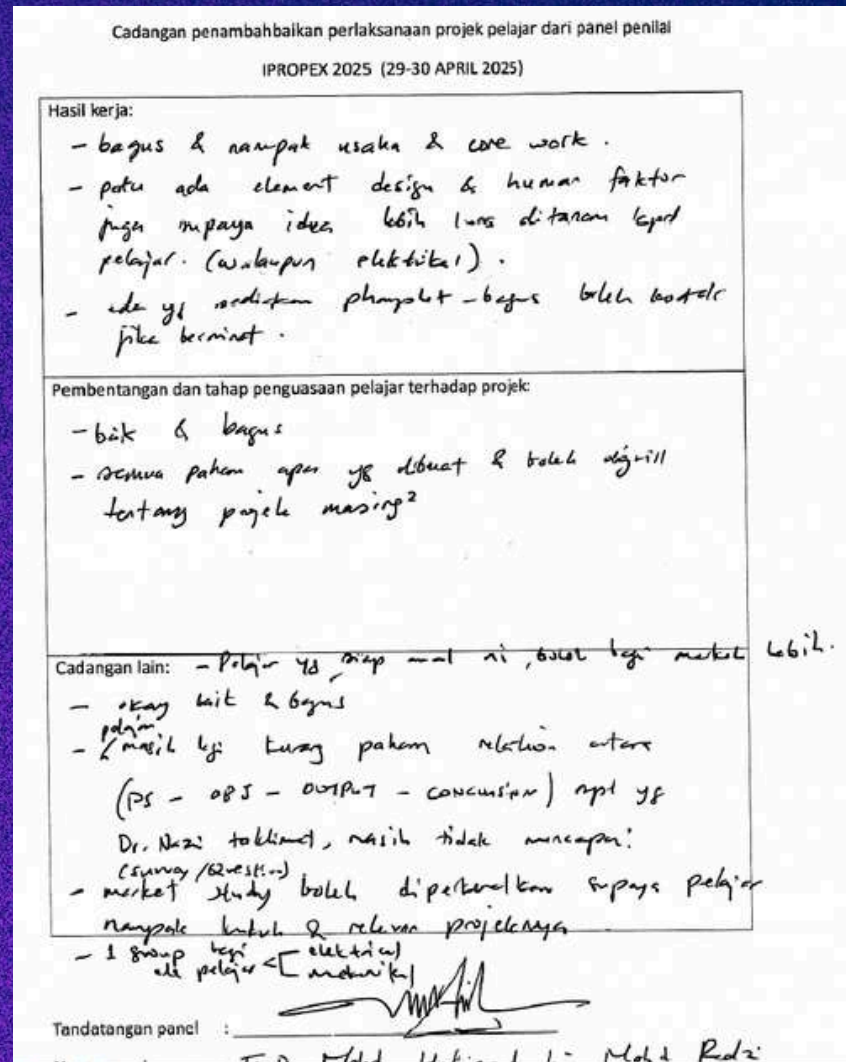 Cadangan penambahbaikan perlaksanaan projek pelajar dari panel penilai
IPROPEX 2025 (29-30 APRIL 2025)
Hasil kerja:
- bagus & nampak usaha & core work.
- patu ada element design & human faktor
juga supaya idea lebih luas ditanam kpd
pelajar. (walaupun elektrikal).
- ada yg sediakan phamplet - bagus boleh
jika berminat.
Pembentangan dan tahap penguasaan pelajar terhadap projek:
- baik & bagus
- semua paham apa yg dibuat & boleh digrill
tentang projek masing2
Cadangan lain: - Pelajar yg siap awal ni, boleh bagi markah lebih.
- okay baik & bagus
- pelajar masih lagi kurang paham relation antara
(PS - OBJ - OUTPUT - CONCLUSION) spt yg
Dr. Nazi taklimat, masih tidak mencapai!
(survey/question)
- market study boleh diperkenalkan supaya pelajar
nampak & relevan projeknya
- 1 group bagi
pelajar <[ elektrikal
mekanikal
Tandatangan panel :
Mohd Mohd Redzi